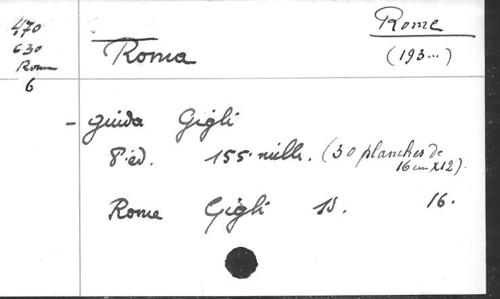 470
630
Rome
6
Roma
Rome
(193...)
- guida Gigli
8° éd. 155. mille. (30 planches de
16 cm X 12).
Rome Gigli 16.